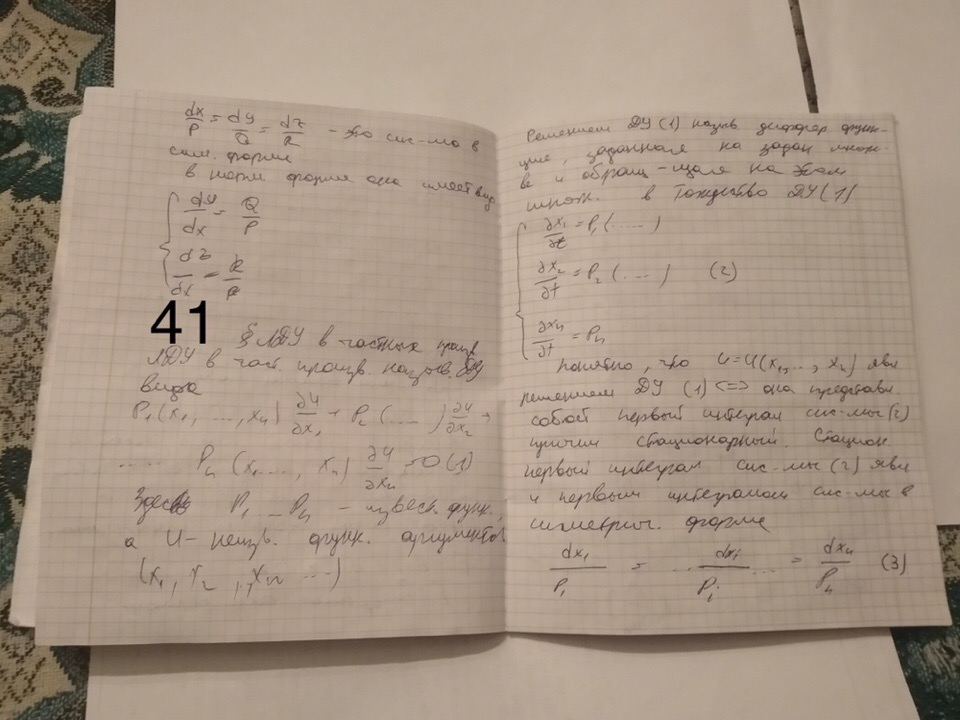 dx/P = dy/Q = dz/R - это сис-ма в
сим. форме
в норм форме она имеет вид
dy/dx = Q/P
dz/dx = R/P
41
§ ЛДУ в частных произв.
ЛДУ в част. произв. назыв. ДУ
вида
P₁(x₁, ..., xₙ) ∂u/∂x₁ + P₂(.....) ∂u/∂x₂ +
..... Pₙ (x₁..., xₙ) ∂u/∂xₙ = 0 (1)
Здесь P₁ ... Pₙ - извест. функ.,
а U - неизв. функ. аргументов
(x₁, x₂ ..., xₙ ...)
Решением ДУ (1) назыв диффер функ-
ция, заданная на задан множ-
ве и обращ-щая на этом
множ. в тождество ДУ(1)
∂x₁/∂t = P₁(.....)
∂x₂/∂t = P₂(....) (2)
∂xₙ/∂t = Pₙ
Понятно, что u=u(x₁,..., xₙ) явл
решением ДУ (1) <=> она представл
собой первый интеграл сис-мы(2)
причём стационарный. Стацион.
первый интеграл сис-мы (2) явл
и первым интегралом сис-мы в
симметрич. форме
dx₁/P₁ = ... dxᵢ/Pᵢ ... = dxₙ/Pₙ (3)